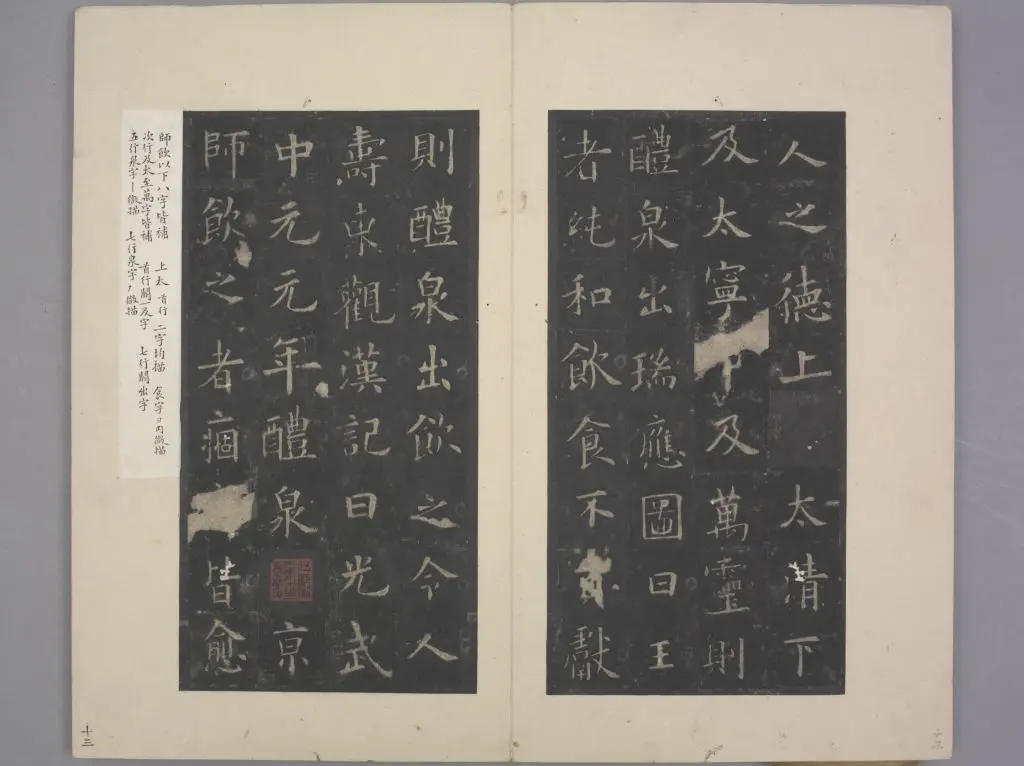 人之德上太清下
及太寧中及萬靈則
醴泉出瑞應圖曰王
者純和飲食不貢獻
則醴泉出飲之令人
壽東觀漢記曰光武
中元元年醴泉京
師飲之者痼皆愈
師飲以下八字皆補 上太 首行 二字均描 食字內微描
次行及太至萬字皆補 首行闕一及字 七行闕出字
五行泉字微描 七行泉字微描
十三